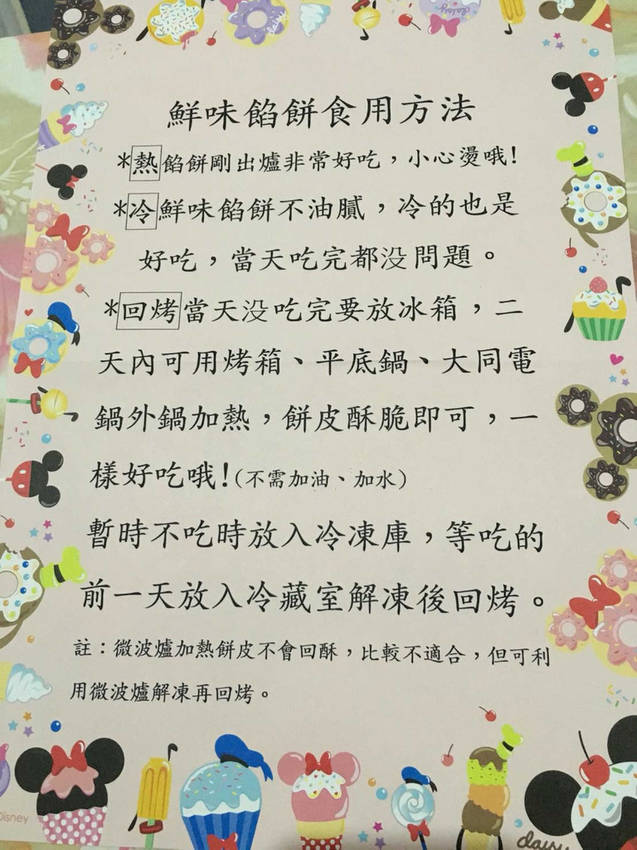 鮮味餡餅食用方法
*熱餡餅剛出爐非常好吃，小心燙哦!
*冷鮮味餡餅不油膩，冷的也是
好吃，當天吃完都没問題。
*回烤當天没吃完要放冰箱，二
天內可用烤箱、平底鍋、大同電
鍋外鍋加熱，餅皮酥脆即可，一
樣好吃哦!(不需加油、加水)
暫時不吃時放入冷凍庫，等吃的
前一天放入冷藏室解凍後回烤。
註：微波爐加熱餅皮不會回酥，比較不適合，但可利
用微波爐解凍再回烤。
Disney
daisy